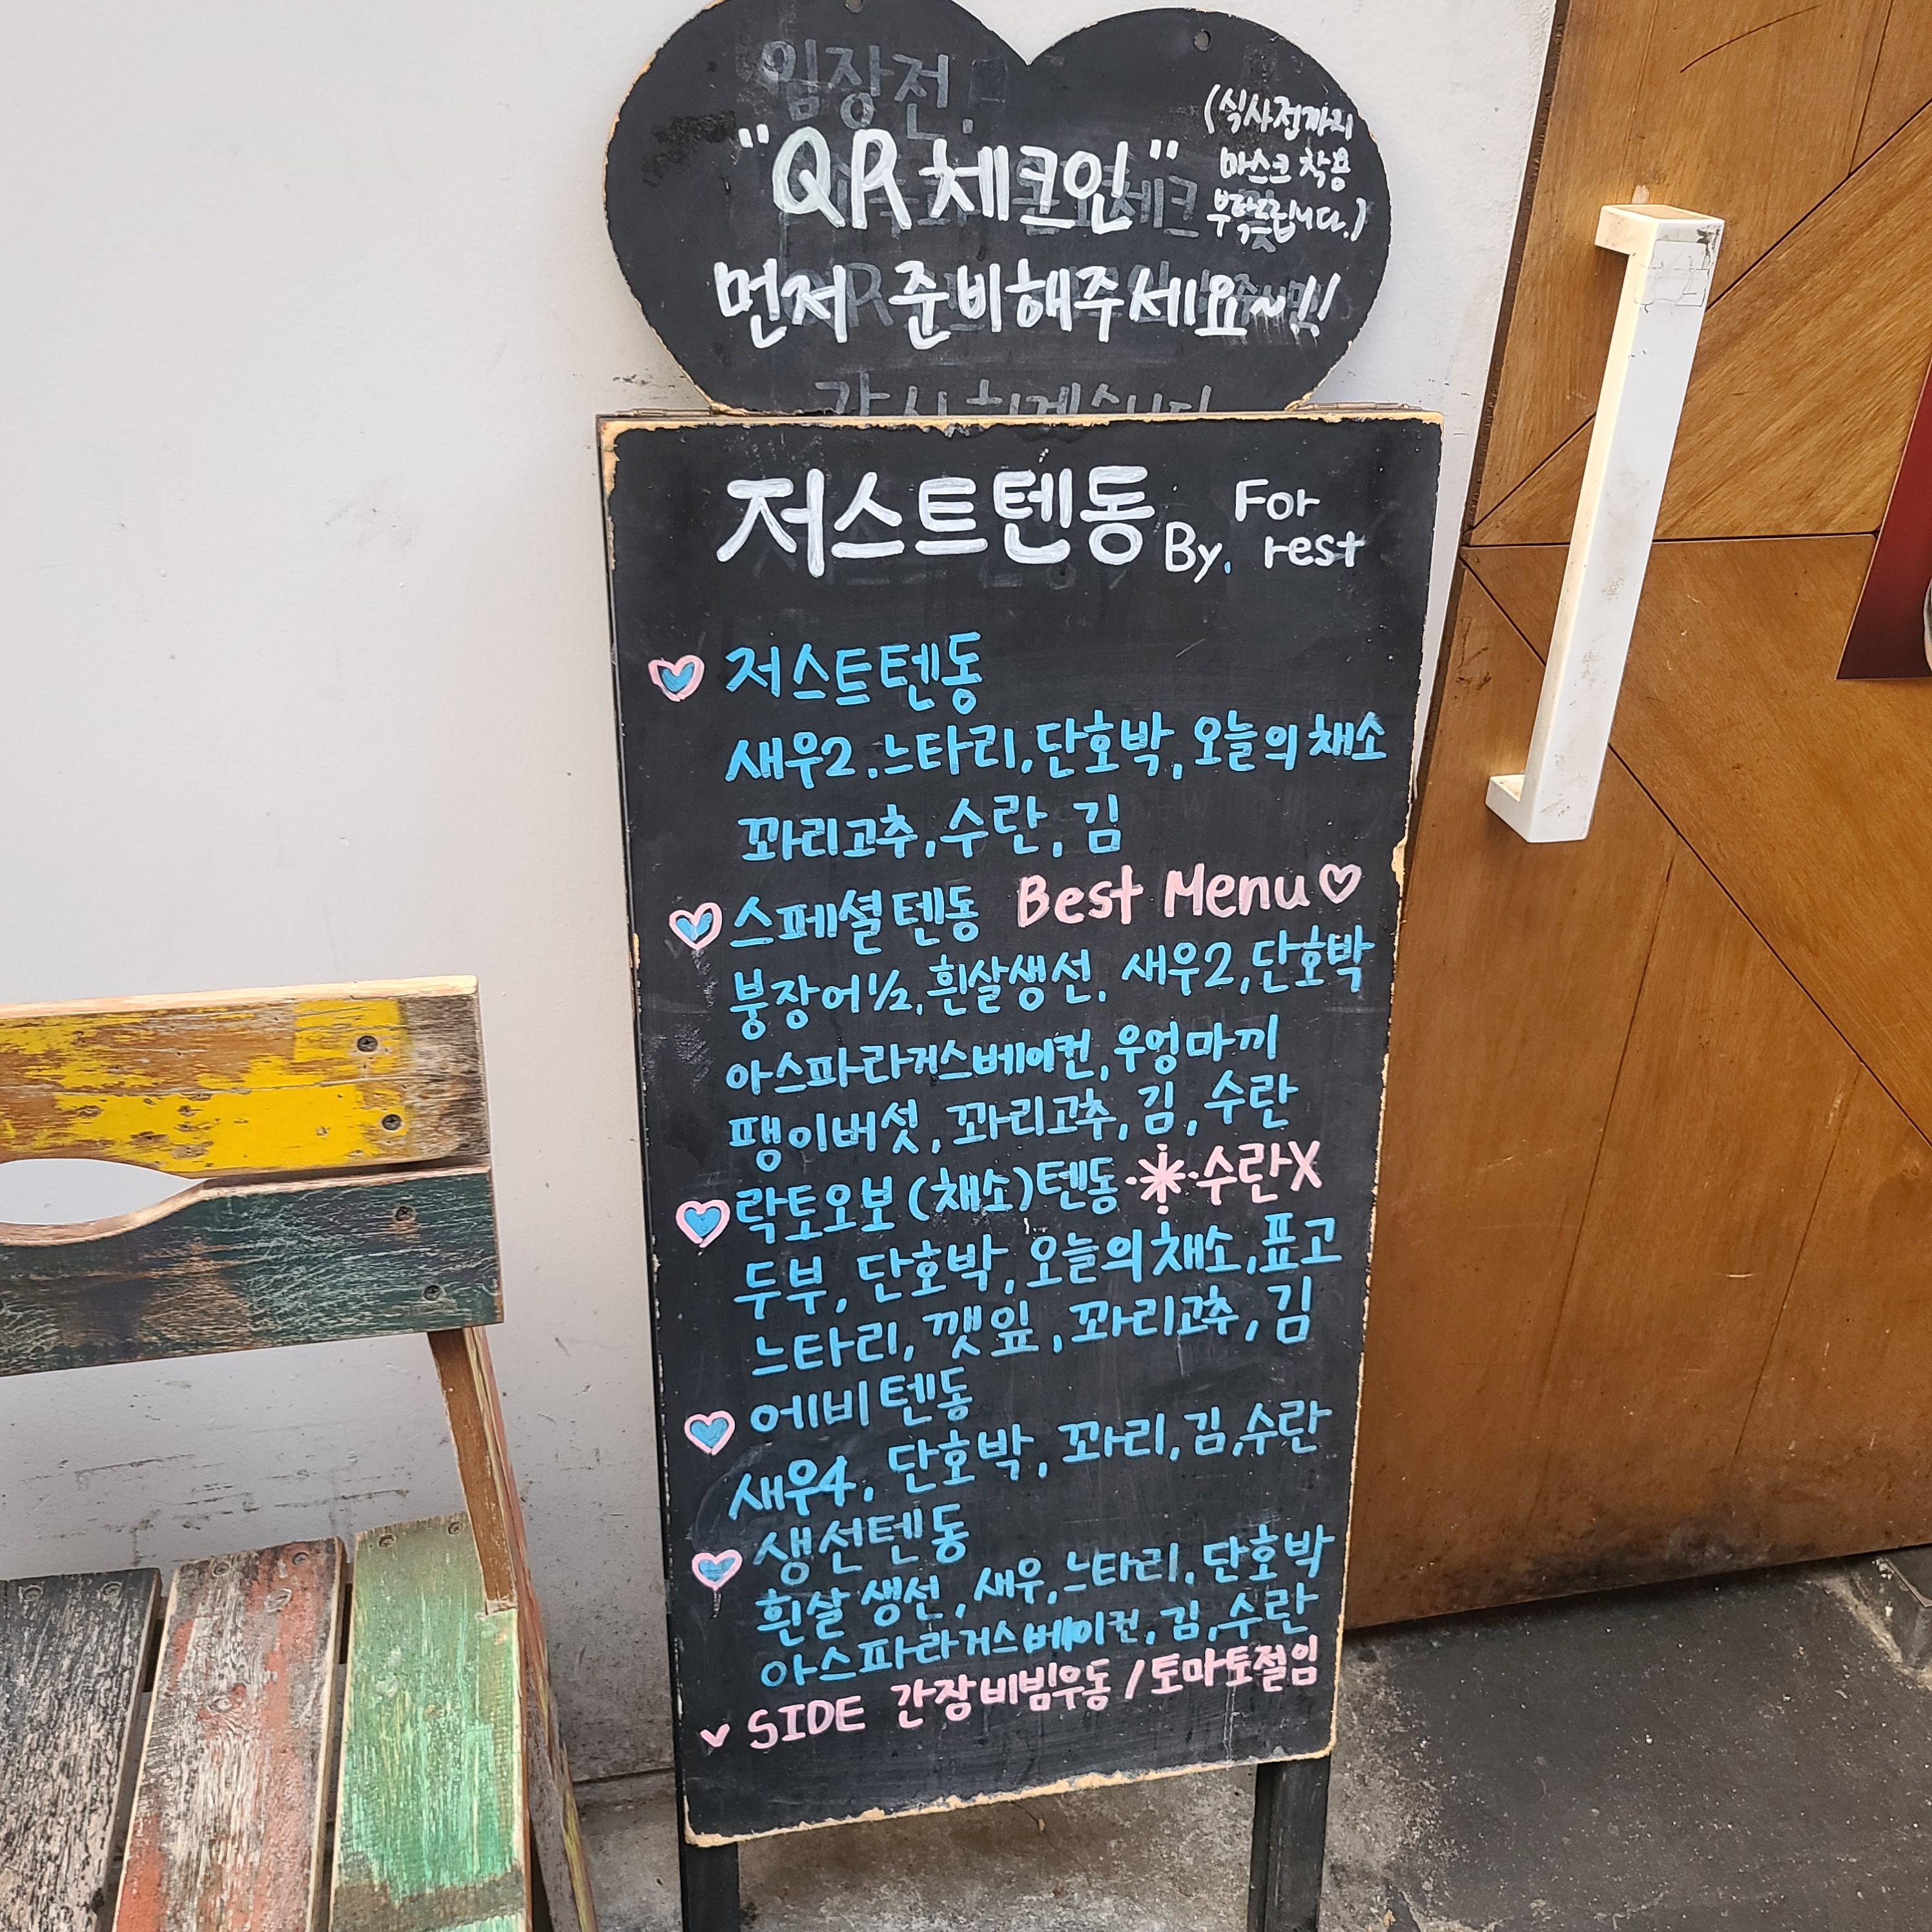 입장전,
"QR 체크인"
(식사전까지
마스크 착용
부탁드립니다.)
먼저 준비해주세요~!!
감사하겠습니다
저스트텐동 By. For rest
저스트텐동
새우2, 느타리, 단호박, 오늘의 채소
꽈리고추, 수란, 김
스페셜텐동 Best Menu♡
붕장어½, 흰살생선, 새우2, 단호박
아스파라거스베이컨, 우엉마끼
팽이버섯, 꽈리고추, 김, 수란
락토오보(채소)텐동 * 수란X
두부, 단호박, 오늘의 채소, 표고
느타리, 깻잎, 꽈리고추, 김
에비텐동
새우4, 단호박, 꽈리, 김, 수란
생선텐동
흰살생선, 새우, 느타리, 단호박
아스파라거스베이컨, 김, 수란
SIDE 간장비빔우동 / 토마토절임